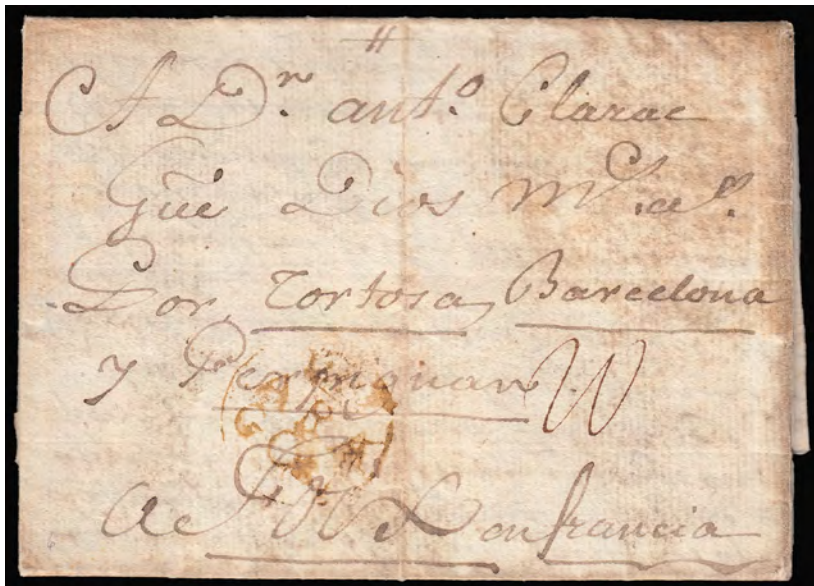 A Dn. antº. Clarac
Gūe Dios ms. as.
Por Tortosa, Barcelona
y Perpignan
A en francia